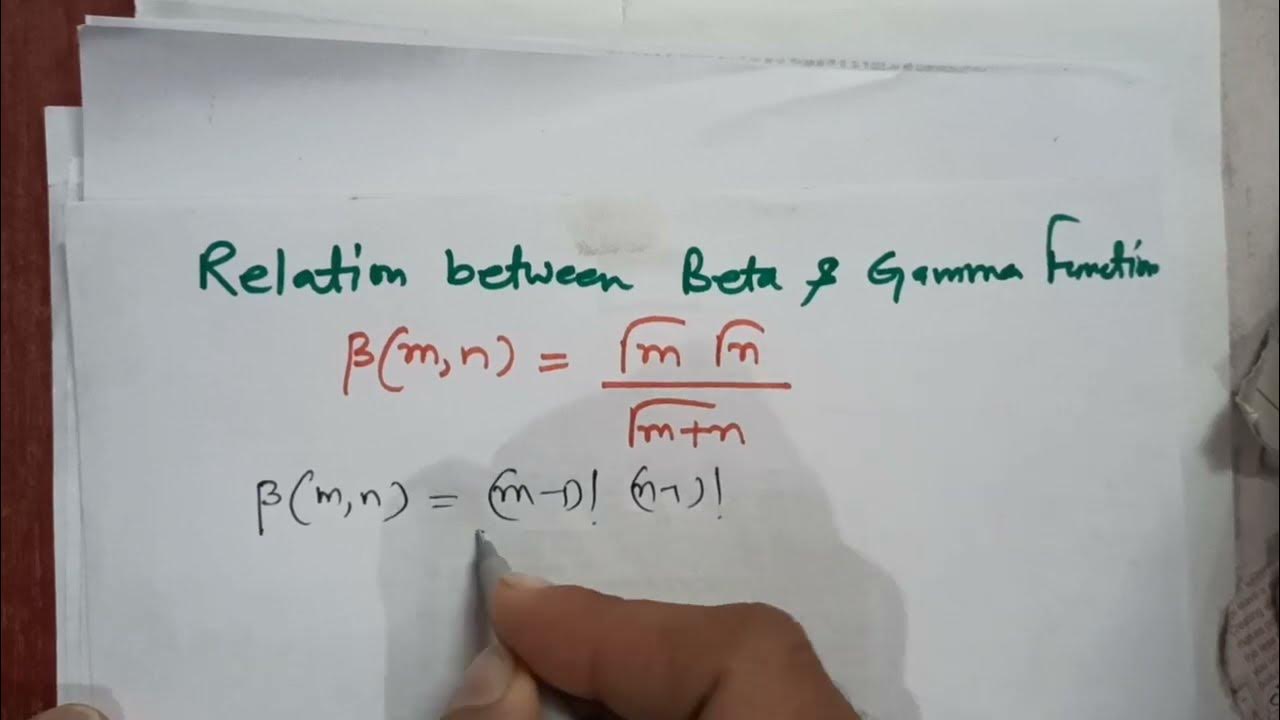 Relation between Beta & Gamma Function
β(m,n) = Γm Γn / Γm+n
β(m,n) = (m-1)! (n-1)!